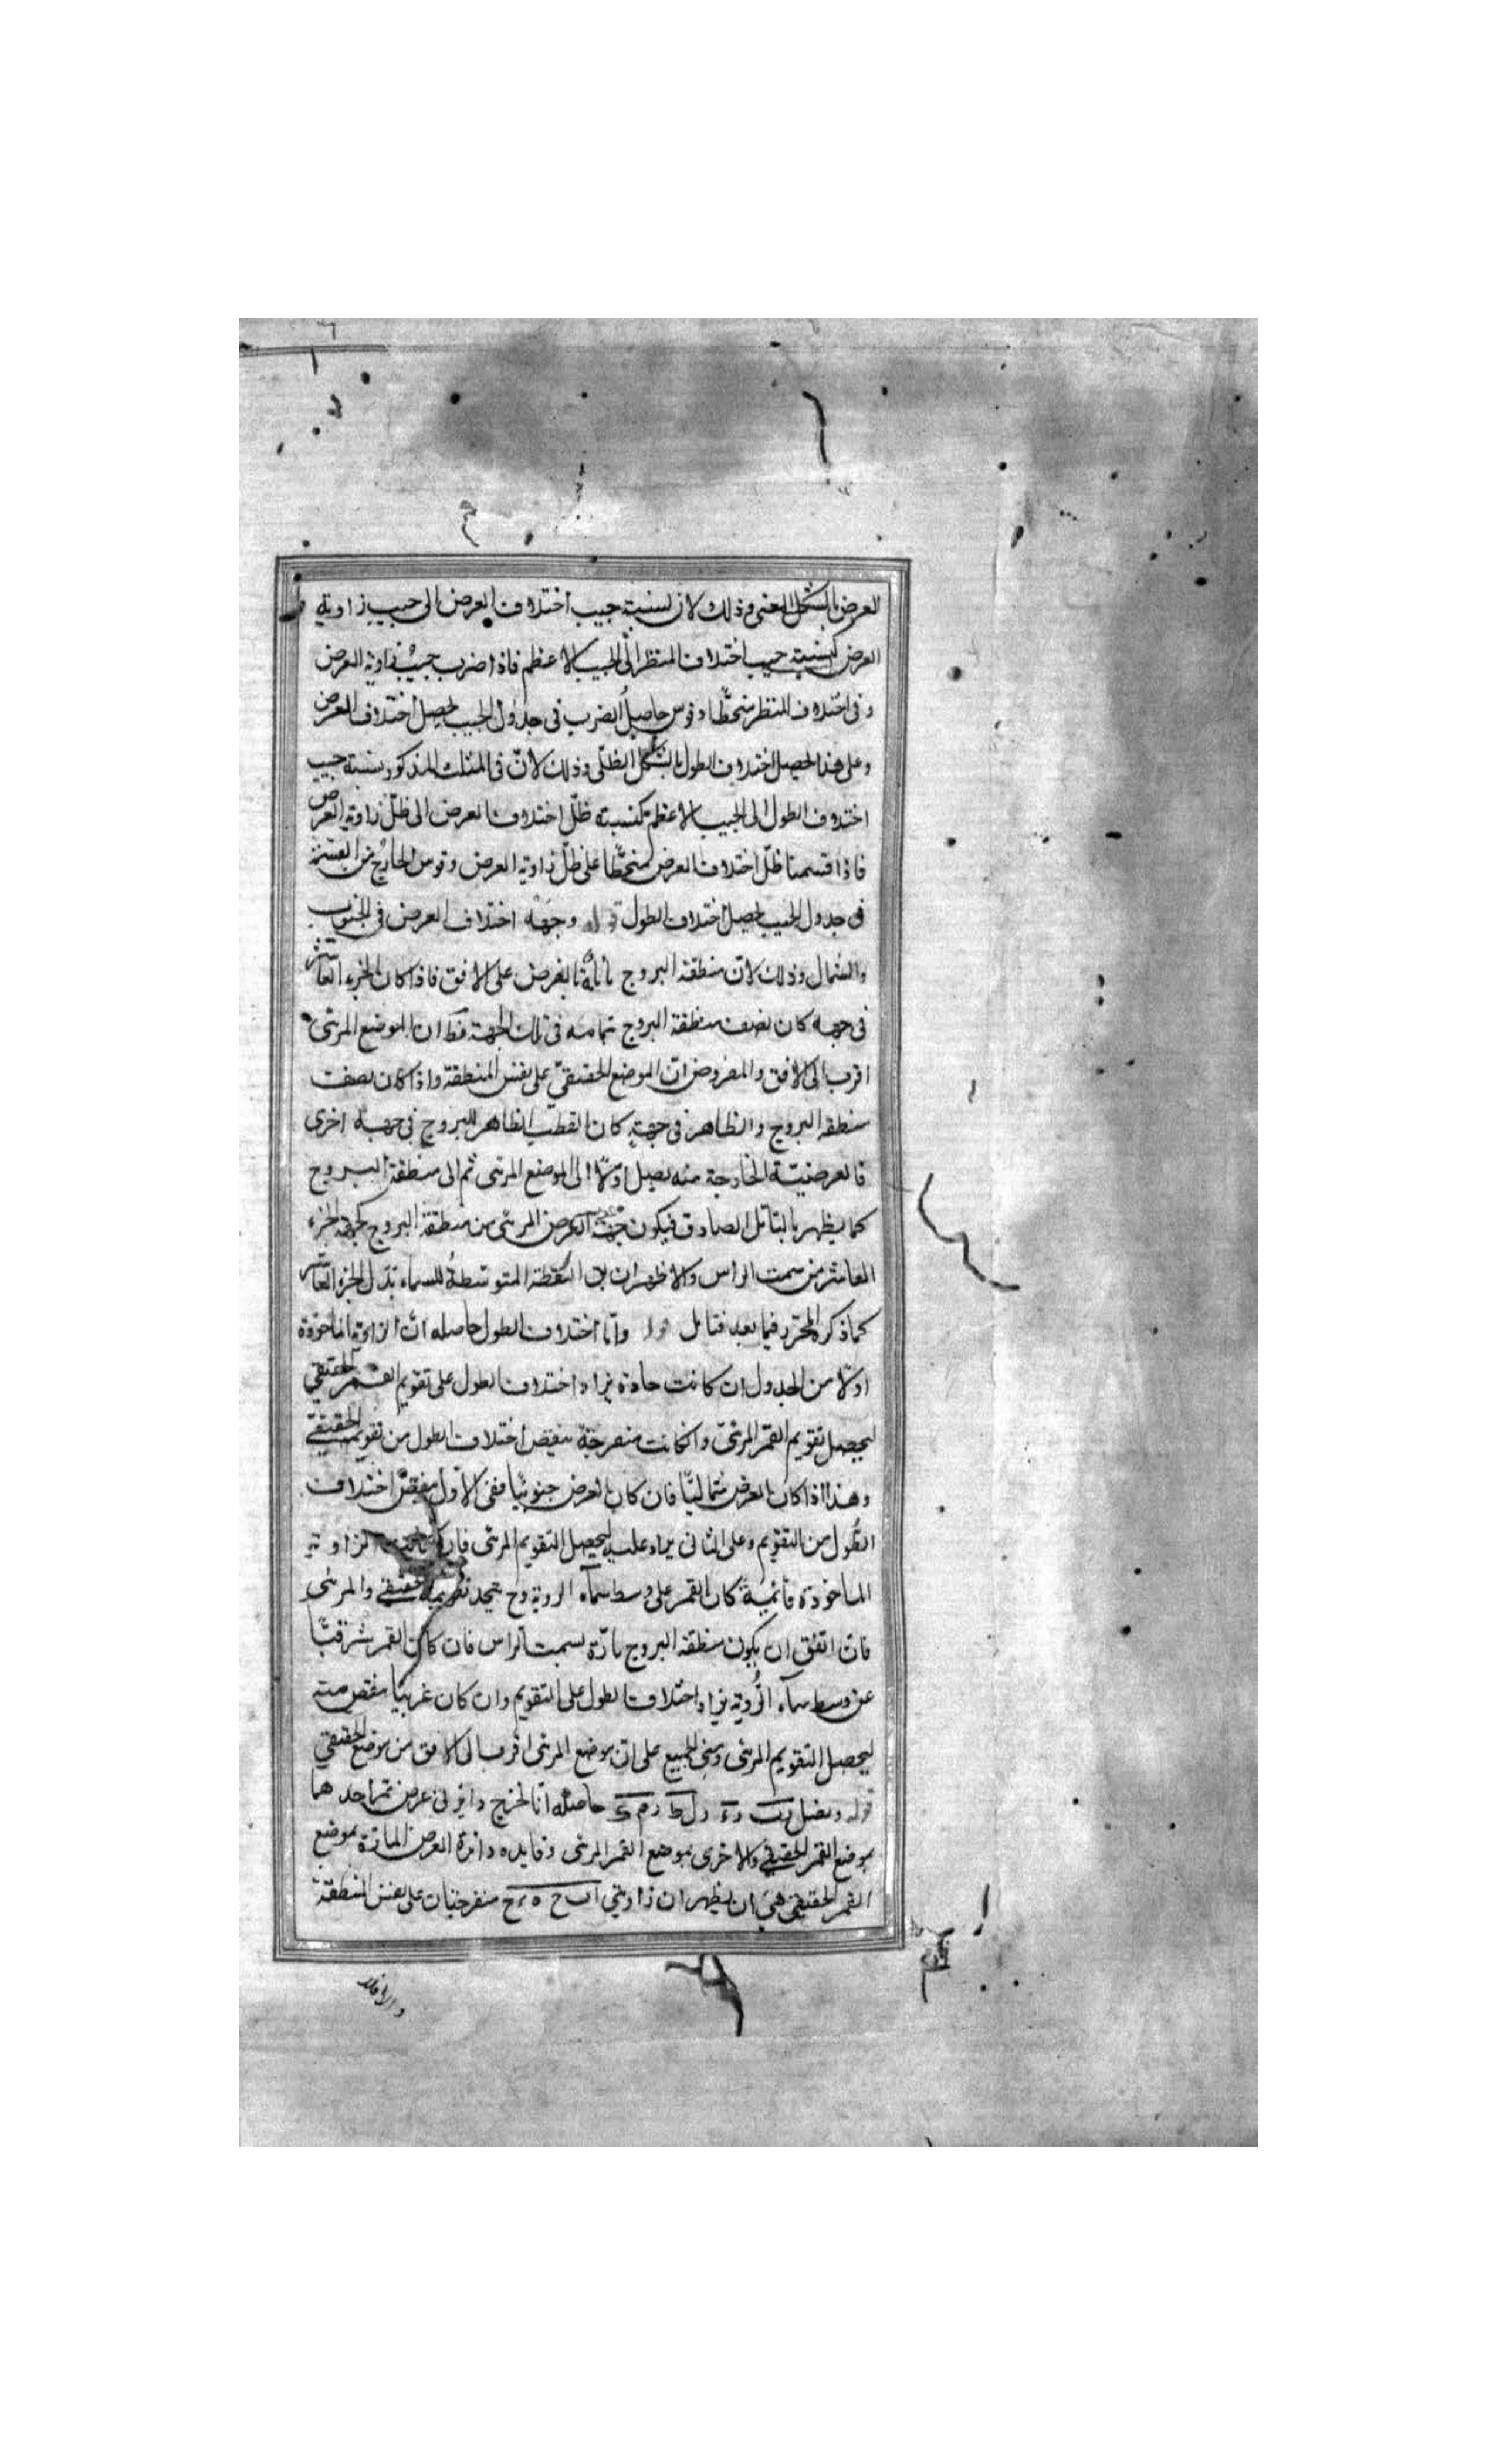 العرض بالشكل المغنى وذلك لان نسبة جيب اختلاف العرض الى جيب زاوية
العرض كنسبة جيب اختلاف المنظر الى الجيب الاعظم فاذا ضرب جيب زاوية العرض
فى اختلاف المنظر منحطّا وقوس حاصل الضرب فى جداول الجيب يحصل اختلاف العرض
وعلى هذا يحصل اختلاف الطول بالشكل الظلّى وذلك لانّ فى المثلث المذكور نسبة جيب
اختلاف الطول الى الجيب الاعظم كنسبة ظلّ اختلاف العرض الى ظلّ زاوية العرض
فاذا قسمنا ظلّ اختلاف العرض منحطّا على ظلّ زاوية العرض وقوس الخارج من القسمة
فى جدول الجيب يحصل اختلاف الطول قوله وجهة اختلاف العرض فى الجنوب
والشمال وذلك لانّ منطقة البروج بالفرض على الافق فاذا كان الجزء العاشر
فى جهة كان نصف منطقة البروج بتمامه فى تلك الجهة فكان الموضع المرئى
اقرب الى الافق والمفروض انّ الموضع الحقيقىّ على نفس المنطقة واذا كان نصف
منطقة البروج والظاهر فى جهة كان القطب الظاهر للبروج فى جهة اخرى
فالعرضيّة الخارجة منه يصل اوّلا الى الموضع المرئى ثم الى منطقة البروج
كما يظهر بالتأمّل الصادق فيكون جهة العرض المرئى من منطقة البروج كجهة الجزء
العاشر من سمت الراس والاظهر ان النقطة المتوسّطة للسماء بدل الجزء العاشر
كما ذكره المحرّر فيما بعد فتامل قوله وامّا اختلاف الطول حاصله انّ الزاوية الماخوذة
اوّلا من الجدول ان كانت حادة يزاد اختلاف الطول على تقويم القمر الحقيقى
ليحصل تقويم القمر المرئىّ وانكانت منفرجة ينقص اختلاف الطول من تقويمه الحقيقىّ
وهذا اذا كان العرض شماليّا فان كان العرض جنوبيّا ففى الاوّل ينقص اختلاف
الطول من التقويم وعلى الثانى يزاد عليه ليحصل التقويم المرئى فان كانت الزاوية
الماخوذة قائمة كان القمر على وسط سماء الروية وح يتحد تقويمه الحقيقى والمرئى
فان اتفق ان يكون منطقة البروج مارّة بسمت الراس فان كان القمر شرقيّا
عن وسط سماء الرُّوية يزاد اختلاف الطول على التقويم وان كان غربيّا ينقص منه
ليحصل التقويم المرئى ومبنى الجميع على انّ موضع المرئى اقرب الى الافق من موضع الحقيقى
قوله ونصل حاصله انا نخرج دايرتى عرض تمر احدهما
بموضع القمر الحقيقى والاخرى بموضع القمر المرئى وفايده دائرة العرض المارّة بموضع
القمر الحقيقى هى ان يظهر ان زاويتى اب ح ه ء ح منفرجتان على نفس المنطقة